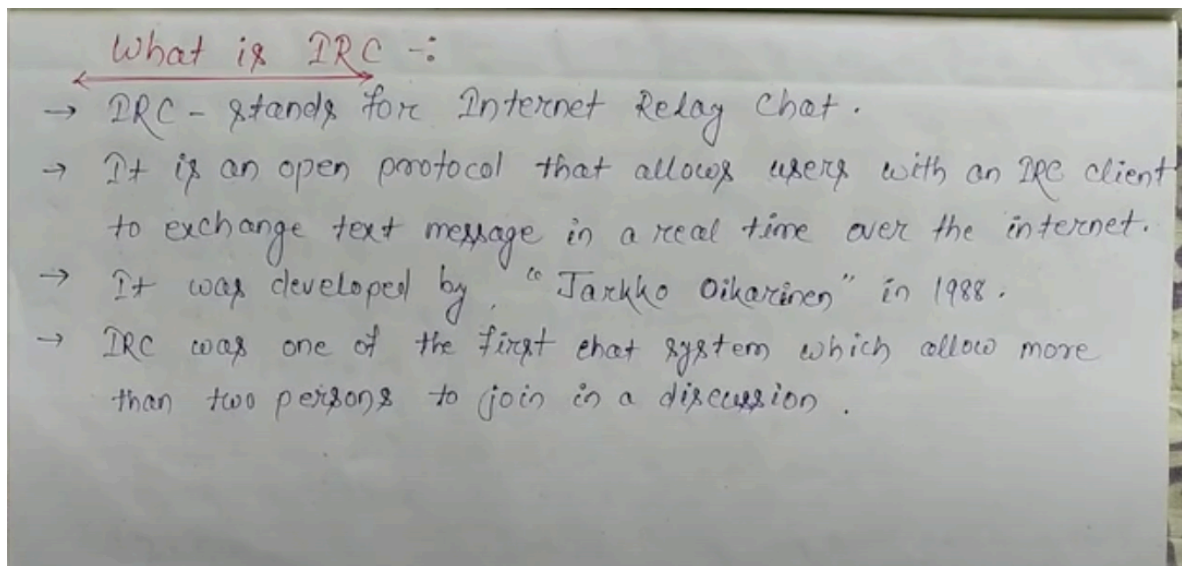 What is IRC -:
→ IRC - stands for Internet Relay Chat.
→ It is an open protocol that allows users with an IRC client
to exchange text message in a real time over the internet.
→ It was developed by "Jarkko Oikarinen" in 1988.
→ IRC was one of the first chat system which allow more
than two persons to join in a discussion.